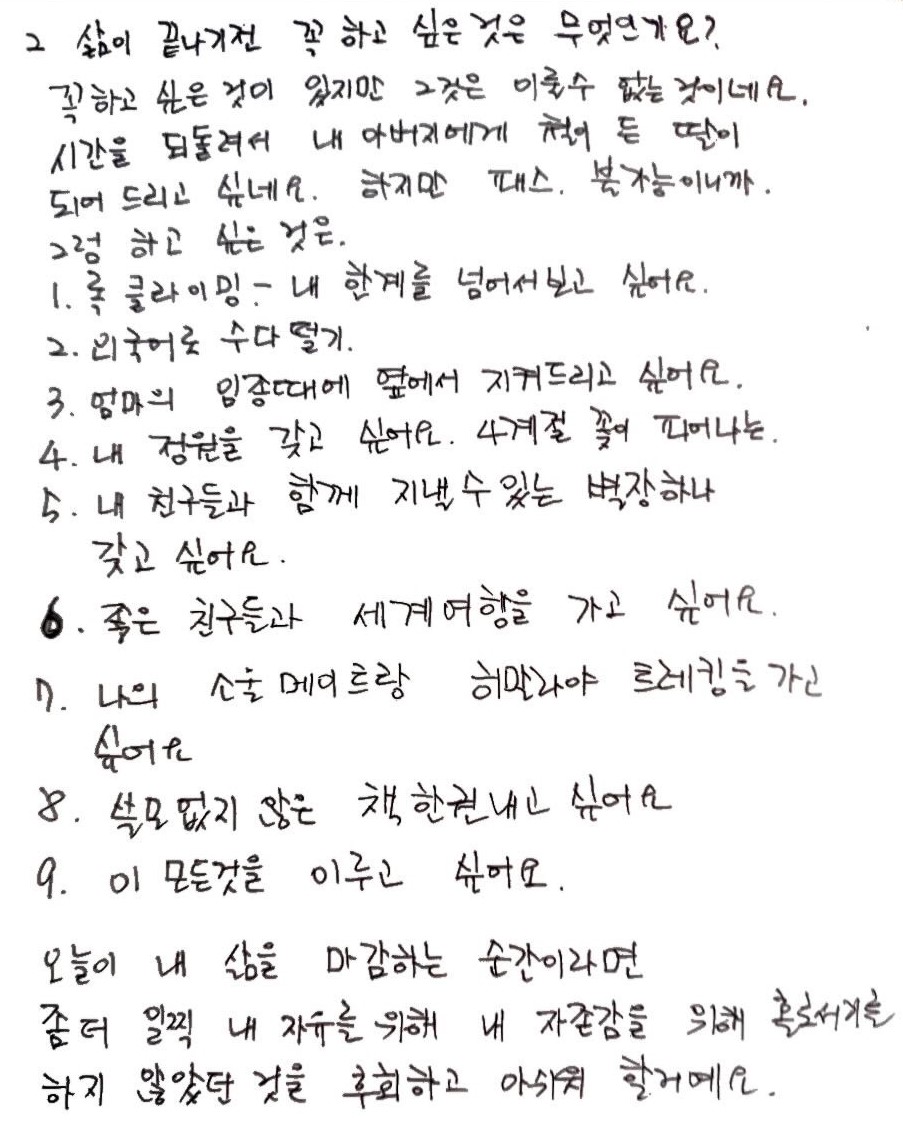 2 삶이 끝나기전 꼭 하고 싶은 것은 무엇인가요?
꼭 하고 싶은 것이 있지만 그것은 이룰수 없는 것이네요.
시간을 되돌려서 내 아버지에게 철이 든 딸이
되어 드리고 싶네요. 하지만 패스. 불가능이니까.
그럼 하고 싶은 것은.
1. 록 클라이밍 - 내 한계를 넘어서보고 싶어요.
2. 외국어로 수다 떨기.
3. 엄마의 임종때에 옆에서 지켜드리고 싶어요.
4. 내 정원을 갖고 싶어요. 4계절 꽃이 피어나는.
5. 내 친구들과 함께 지낼 수 있는 별장하나
갖고 싶어요.
6. 좋은 친구들과 세계여행을 가고 싶어요.
7. 나의 소울메이트랑 히말라야 트레킹을 가고
싶어요
8. 쓸모없지 않은 책 한권내고 싶어요
9. 이 모든것을 이루고 싶어요.
오늘이 내 삶을 마감하는 순간이라면
좀 더 일찍 내 자유를 위해 내 자존감을 위해 홀로서기를
하지 않았던 것을 후회하고 아쉬워 할거예요.